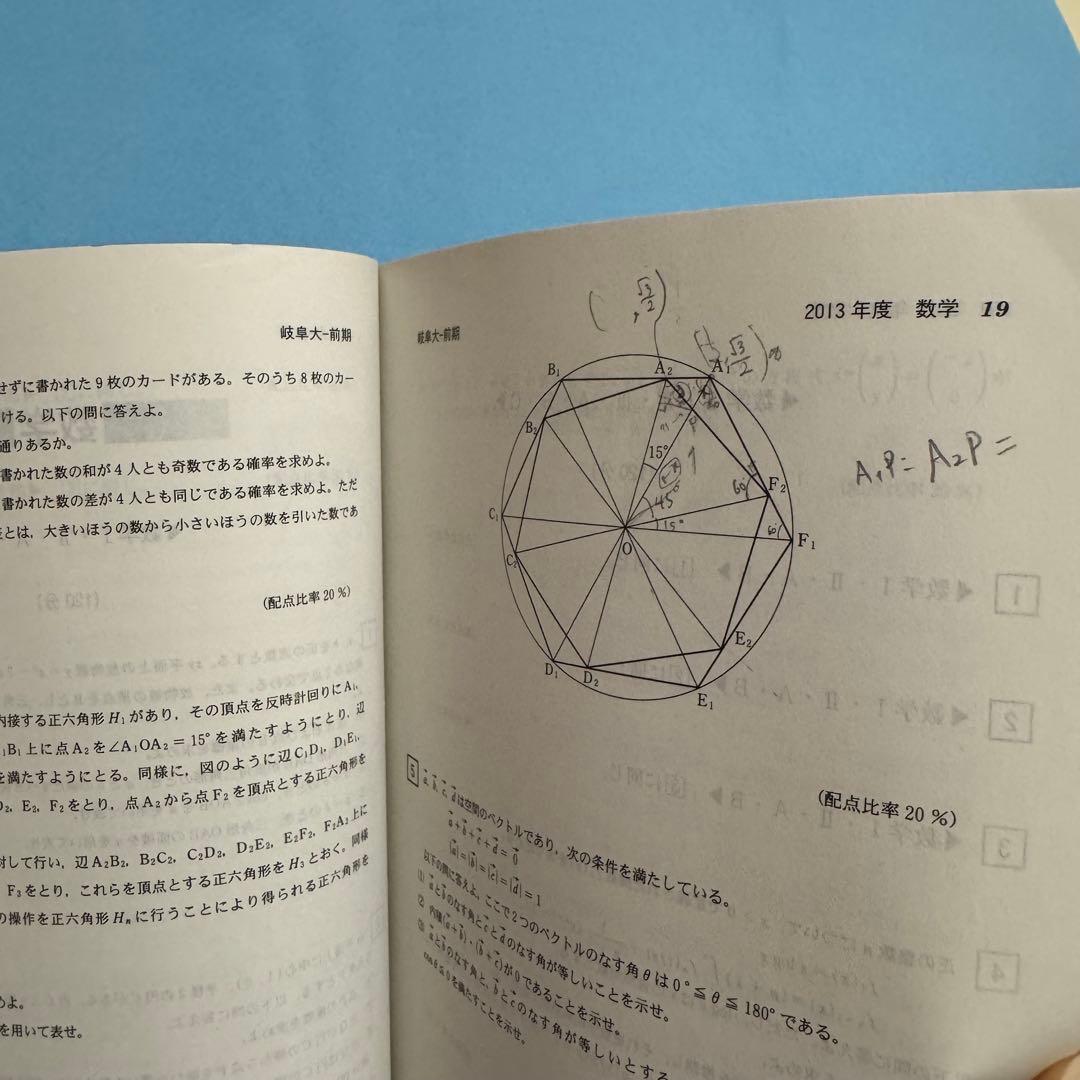 岐阜大-前期
せずに書かれた9枚のカードがある。そのうち8枚のカー
ける。以下の問に答えよ。
通りあるか。
書かれた数の和が4人とも奇数である確率を求めよ。
書かれた数の差が4人とも同じである確率を求めよ。ただ
とは,大きいほうの数から小さいほうの数を引いた数であ
(配点比率20%)
内接する正六角形H₁があり,その頂点を反時計回りにA₁,
B₁上に点A₂を∠A₁OA₂=15°を満たすようにとり,辺
を満たすようにとる。同様に,図のように辺C₁D₁, D₁E₁,
D₂, E₂, F₂をとり,点A₂から点F₂を頂点とする正六角形を
対して行い,辺A₂B₂, B₂C₂, C₂D₂, D₂E₂, E₂F₂, F₂A₂上に
F₃をとり,これらを頂点とする正六角形をH₃とおく。同様
の操作を正六角形Hₙに行うことにより得られる正六角形を
めよ。
を用いて表せ。
岐阜大-前期
2013年度 数学 19
√3/2
√3/2
B₁
A₂
A₁
B₂
15°
45°
15°
60°
60°
F₂
C₁
O
F₁
C₂
E₂
D₁
D₂
E₁
A₁P = A₂P =
(配点比率20%)
5
a⃗, b⃗, c⃗, d⃗は空間のベクトルであり,次の条件を満たしている。
a⃗+b⃗+c⃗+d⃗=0⃗
|a⃗|=|b⃗|=|c⃗|=|d⃗|=1
以下の問に答えよ。ここで2つのベクトルのなす角θは0°≦θ≦180°である。
(1) a⃗とb⃗のなす角とc⃗とd⃗のなす角が等しいことを示せ。
(2) 内積(a⃗+b⃗)・(b⃗+c⃗)が0であることを示せ。
(3) a⃗とb⃗のなす角と,b⃗とc⃗のなす角が等しいとする
cosθ≦0を満たすことを示せ。